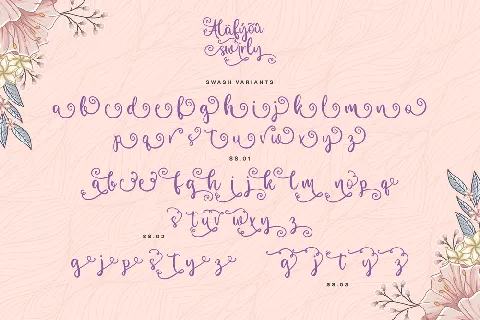 Alafyoa
swirly
SWASH VARIANTS
a b c d e f g h i j k l m n a
p q r s t u v w x y z
SS.01
a b c e f g h i j k l m n o p q e
s t u v w x y z
SS.02
g e j e p e s t y e z e
g j t y z
SS.03